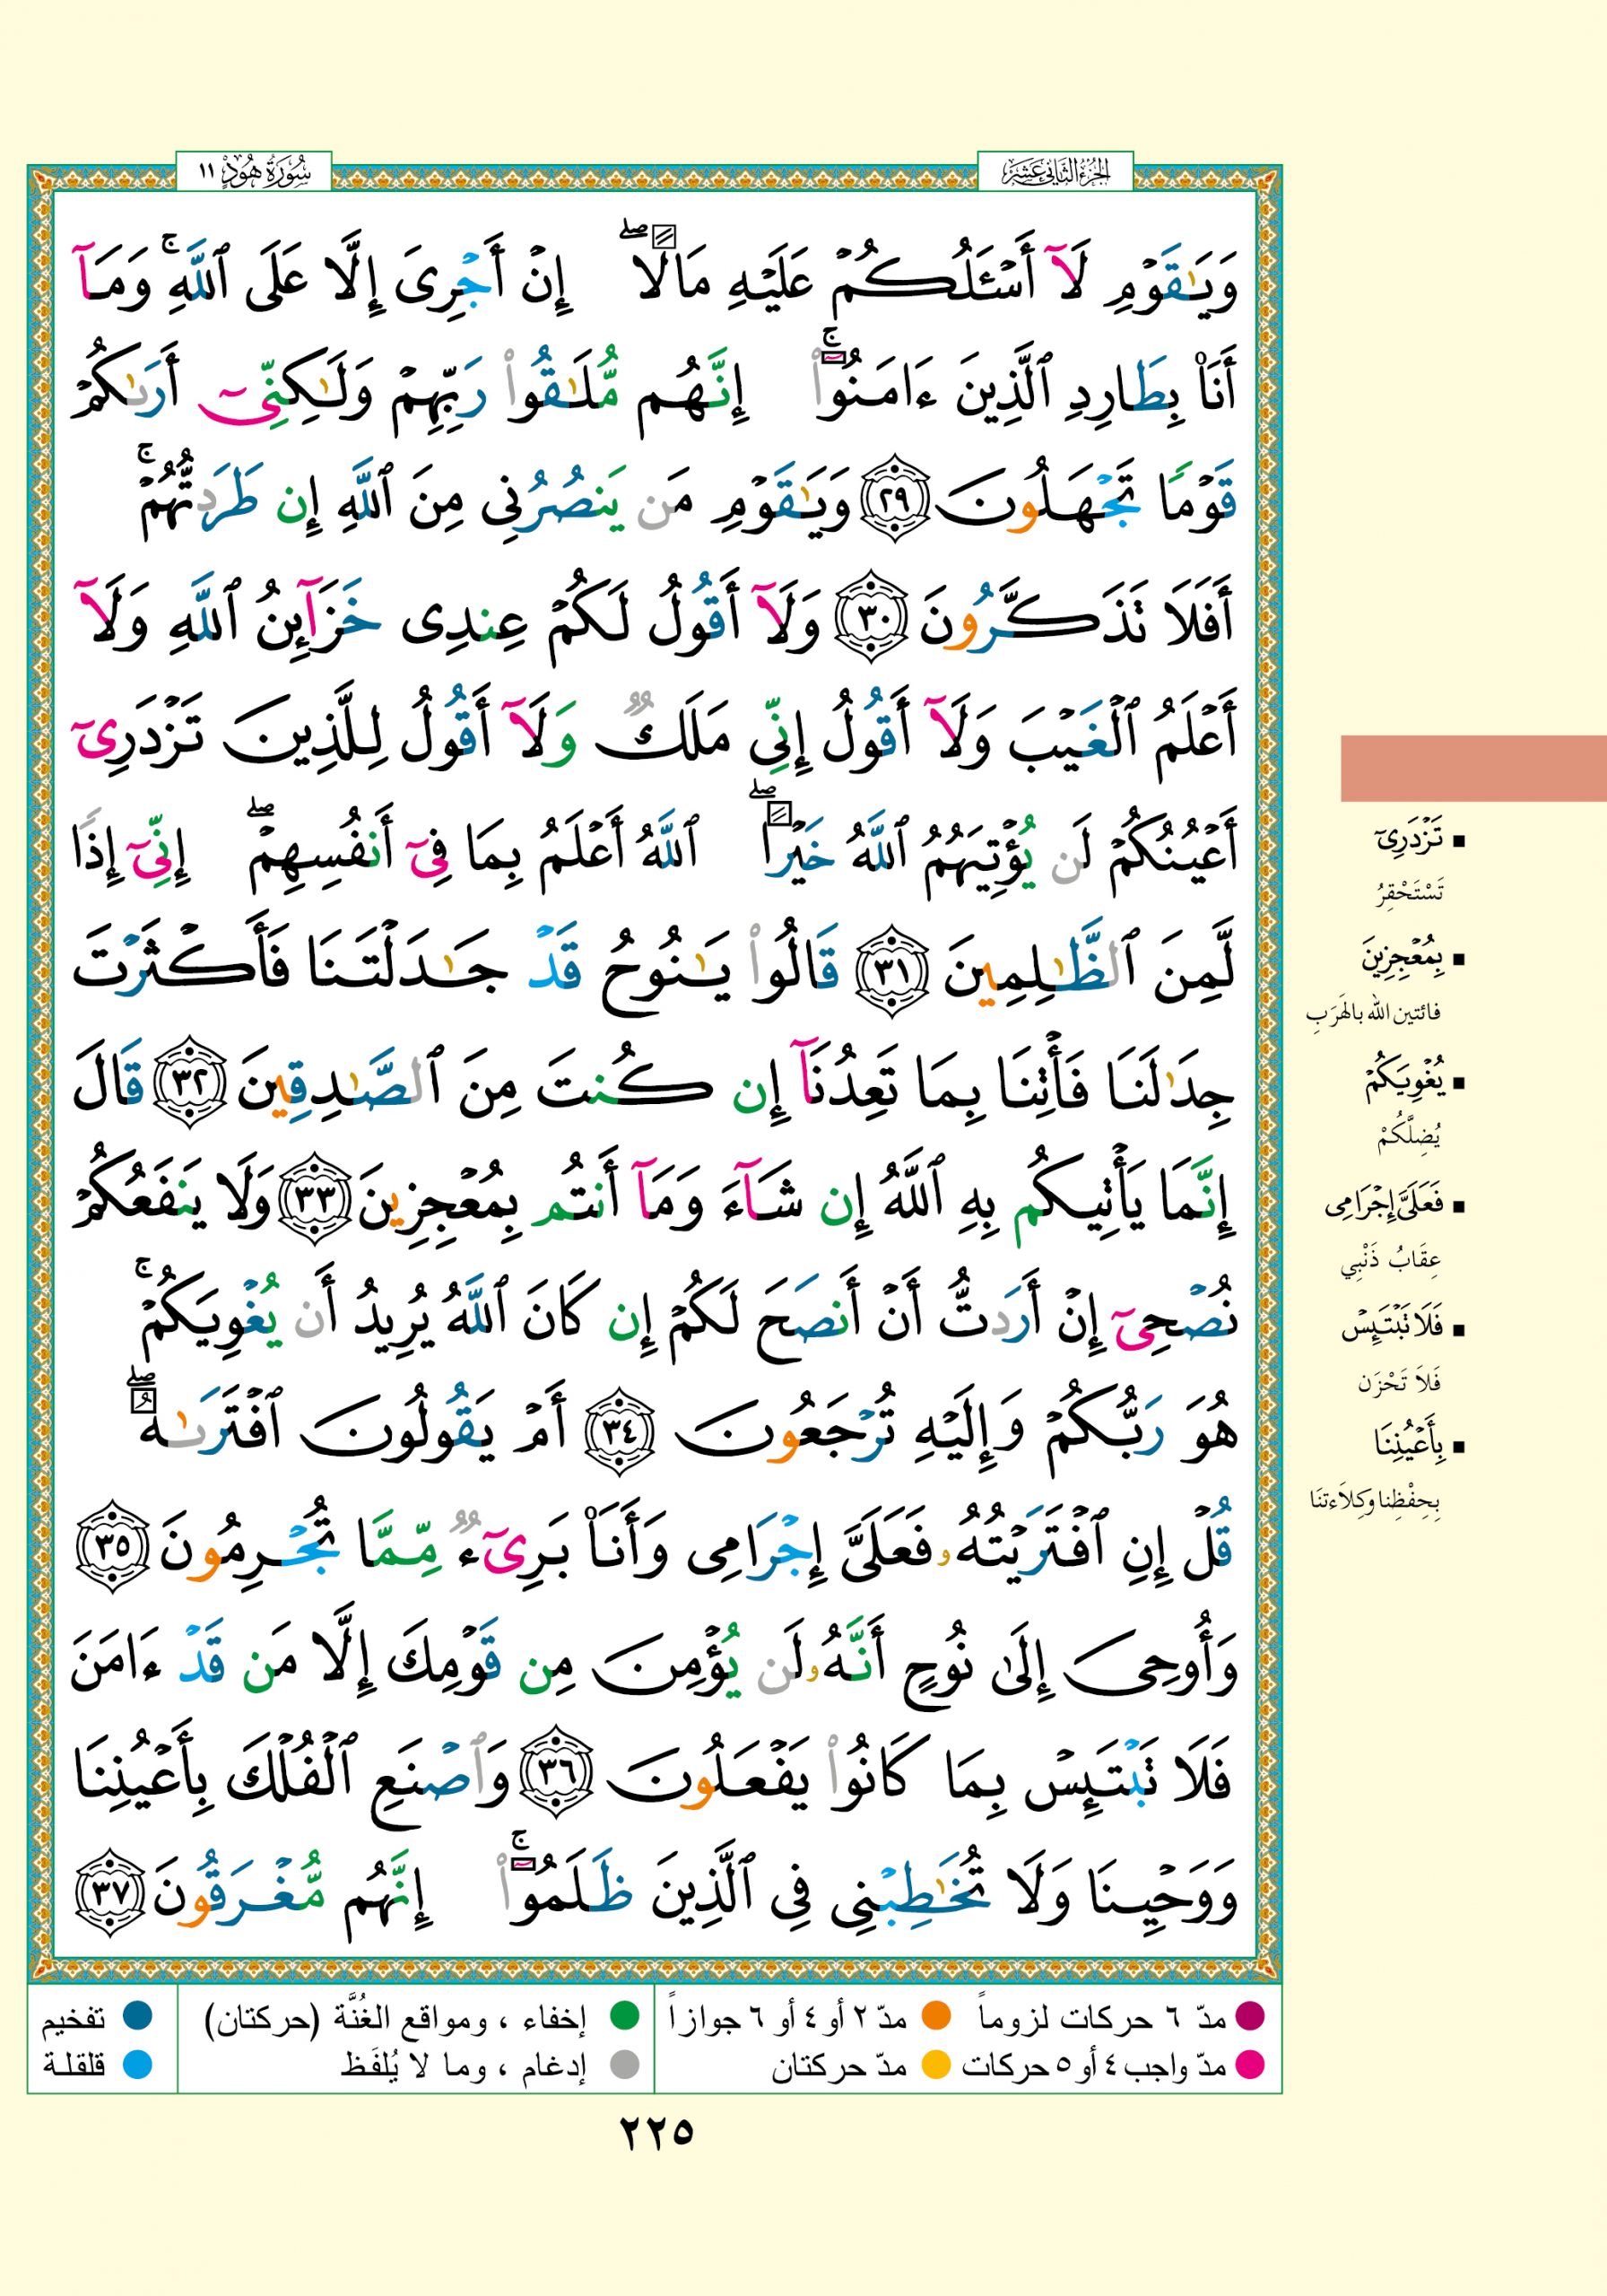 الجزء الثاني عشر
سورة هود ١١
وَيَـٰقَوْمِ لَآ أَسْـَٔلُكُمْ عَلَيْهِ مَالًا ۖ إِنْ أَجْرِىَ إِلَّا عَلَى ٱللَّهِ ۚ وَمَآ
أَنَا۠ بِطَارِدِ ٱلَّذِينَ ءَامَنُوٓا۟ ۚ إِنَّهُم مُّلَـٰقُوا۟ رَبِّهِمْ وَلَـٰكِنِّىٓ أَرَىٰكُمْ
قَوْمًا تَجْهَلُونَ ٢٩ وَيَـٰقَوْمِ مَن يَنصُرُنِى مِنَ ٱللَّهِ إِن طَرَدتُّهُمْ ۚ
أَفَلَا تَذَكَّرُونَ ٣٠ وَلَآ أَقُولُ لَكُمْ عِندِى خَزَآئِنُ ٱللَّهِ وَلَآ
أَعْلَمُ ٱلْغَيْبَ وَلَآ أَقُولُ إِنِّى مَلَكٌ وَلَآ أَقُولُ لِلَّذِينَ تَزْدَرِىٓ
أَعْيُنُكُمْ لَن يُؤْتِيَهُمُ ٱللَّهُ خَيْرًا ۖ ٱللَّهُ أَعْلَمُ بِمَا فِىٓ أَنفُسِهِمْ ۖ إِنِّىٓ إِذًا
لَّمِنَ ٱلظَّـٰلِمِينَ ٣١ قَالُوا۟ يَـٰنُوحُ قَدْ جَـٰدَلْتَنَا فَأَكْثَرْتَ
جِدَٰلَنَا فَأْتِنَا بِمَا تَعِدُنَآ إِن كُنتَ مِنَ ٱلصَّـٰدِقِينَ ٣٢ قَالَ
إِنَّمَا يَأْتِيكُم بِهِ ٱللَّهُ إِن شَآءَ وَمَآ أَنتُم بِمُعْجِزِينَ ٣٣ وَلَا يَنفَعُكُمْ
نُصْحِىٓ إِنْ أَرَدتُّ أَنْ أَنصَحَ لَكُمْ إِن كَانَ ٱللَّهُ يُرِيدُ أَن يُغْوِيَكُمْ ۚ
هُوَ رَبُّكُمْ وَإِلَيْهِ تُرْجَعُونَ ٣٤ أَمْ يَقُولُونَ ٱفْتَرَىٰهُ ۖ
قُلْ إِنِ ٱفْتَرَيْتُهُۥ فَعَلَىَّ إِجْرَامِى وَأَنَا۠ بَرِىٓءٌ مِّمَّا تُجْرِمُونَ ٣٥
وَأُوحِىَ إِلَىٰ نُوحٍ أَنَّهُۥ لَن يُؤْمِنَ مِن قَوْمِكَ إِلَّا مَن قَدْ ءَامَنَ
فَلَا تَبْتَئِسْ بِمَا كَانُوا۟ يَفْعَلُونَ ٣٦ وَٱصْنَعِ ٱلْفُلْكَ بِأَعْيُنِنَا
وَوَحْيِنَا وَلَا تُخَـٰطِبْنِى فِى ٱلَّذِينَ ظَلَمُوٓا۟ ۚ إِنَّهُم مُّغْرَقُونَ ٣٧
▪ تَزْدَرِىٓ
تَسْتَحْقِرُ
▪ بِمُعْجِزِينَ
فائتين الله بالهَرَبِ
▪ يُغْوِيَكُمْ
يُضِلَّكُمْ
▪ فَعَلَىَّ إِجْرَامِى
عِقَابُ ذَنْبِي
▪ فَلَا تَبْتَئِسْ
فَلَا تَحْزَن
▪ بِأَعْيُنِنَا
بِحِفْظِنا وكِلاَءتنَا
مدّ ٦ حركات لزوماً
مدّ ٢ أو ٤ أو ٦ جوازاً
إخفاء ، ومواقع الغُنَّة (حركتان)
تفخيم
مدّ واجب ٤ أو ٥ حركات
مدّ حركتان
إدغام ، وما لا يُلفَظ
قلقلة
٢٢٥